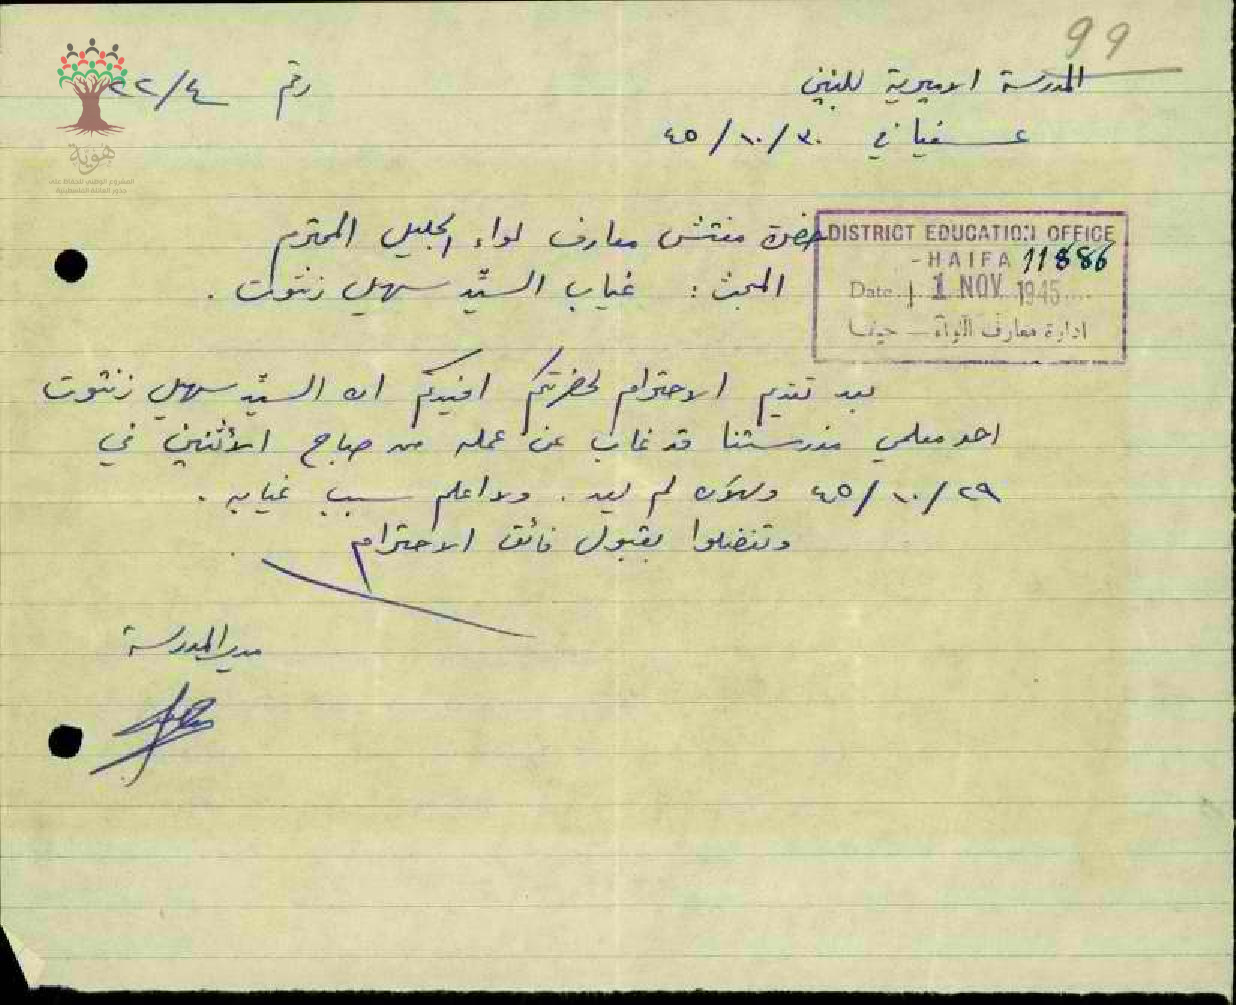 99
المدرسة الاميرية للبنين
رقم ٢٢/٤
عسفيا في ٣٠/١٠/٤٥
هوية
المشروع الوطني للحفاظ على
جذور العائلة الفلسطينية
حضرة مفتش معارف لواء الجليل المحترم
DISTRICT EDUCATION OFFICE
-HAIFA 11886
Date 1 NOV 1945
ادارة معارف اللواء — حيفا
المبحث : غياب السيّد سهيل زنتوت .
بعد تقديم الاحترام لحضرتكم افيدكم ان السيّد سهيل زنتوت
احد معلمي مدرستنا قد غاب عن عمله من صباح الأثنين في
٢٩/١٠/٤٥ وللآن لم يعد . ولا اعلم سبب غيابه .
وتفضلوا بقبول فائق الاحترام
مدير المدرسة